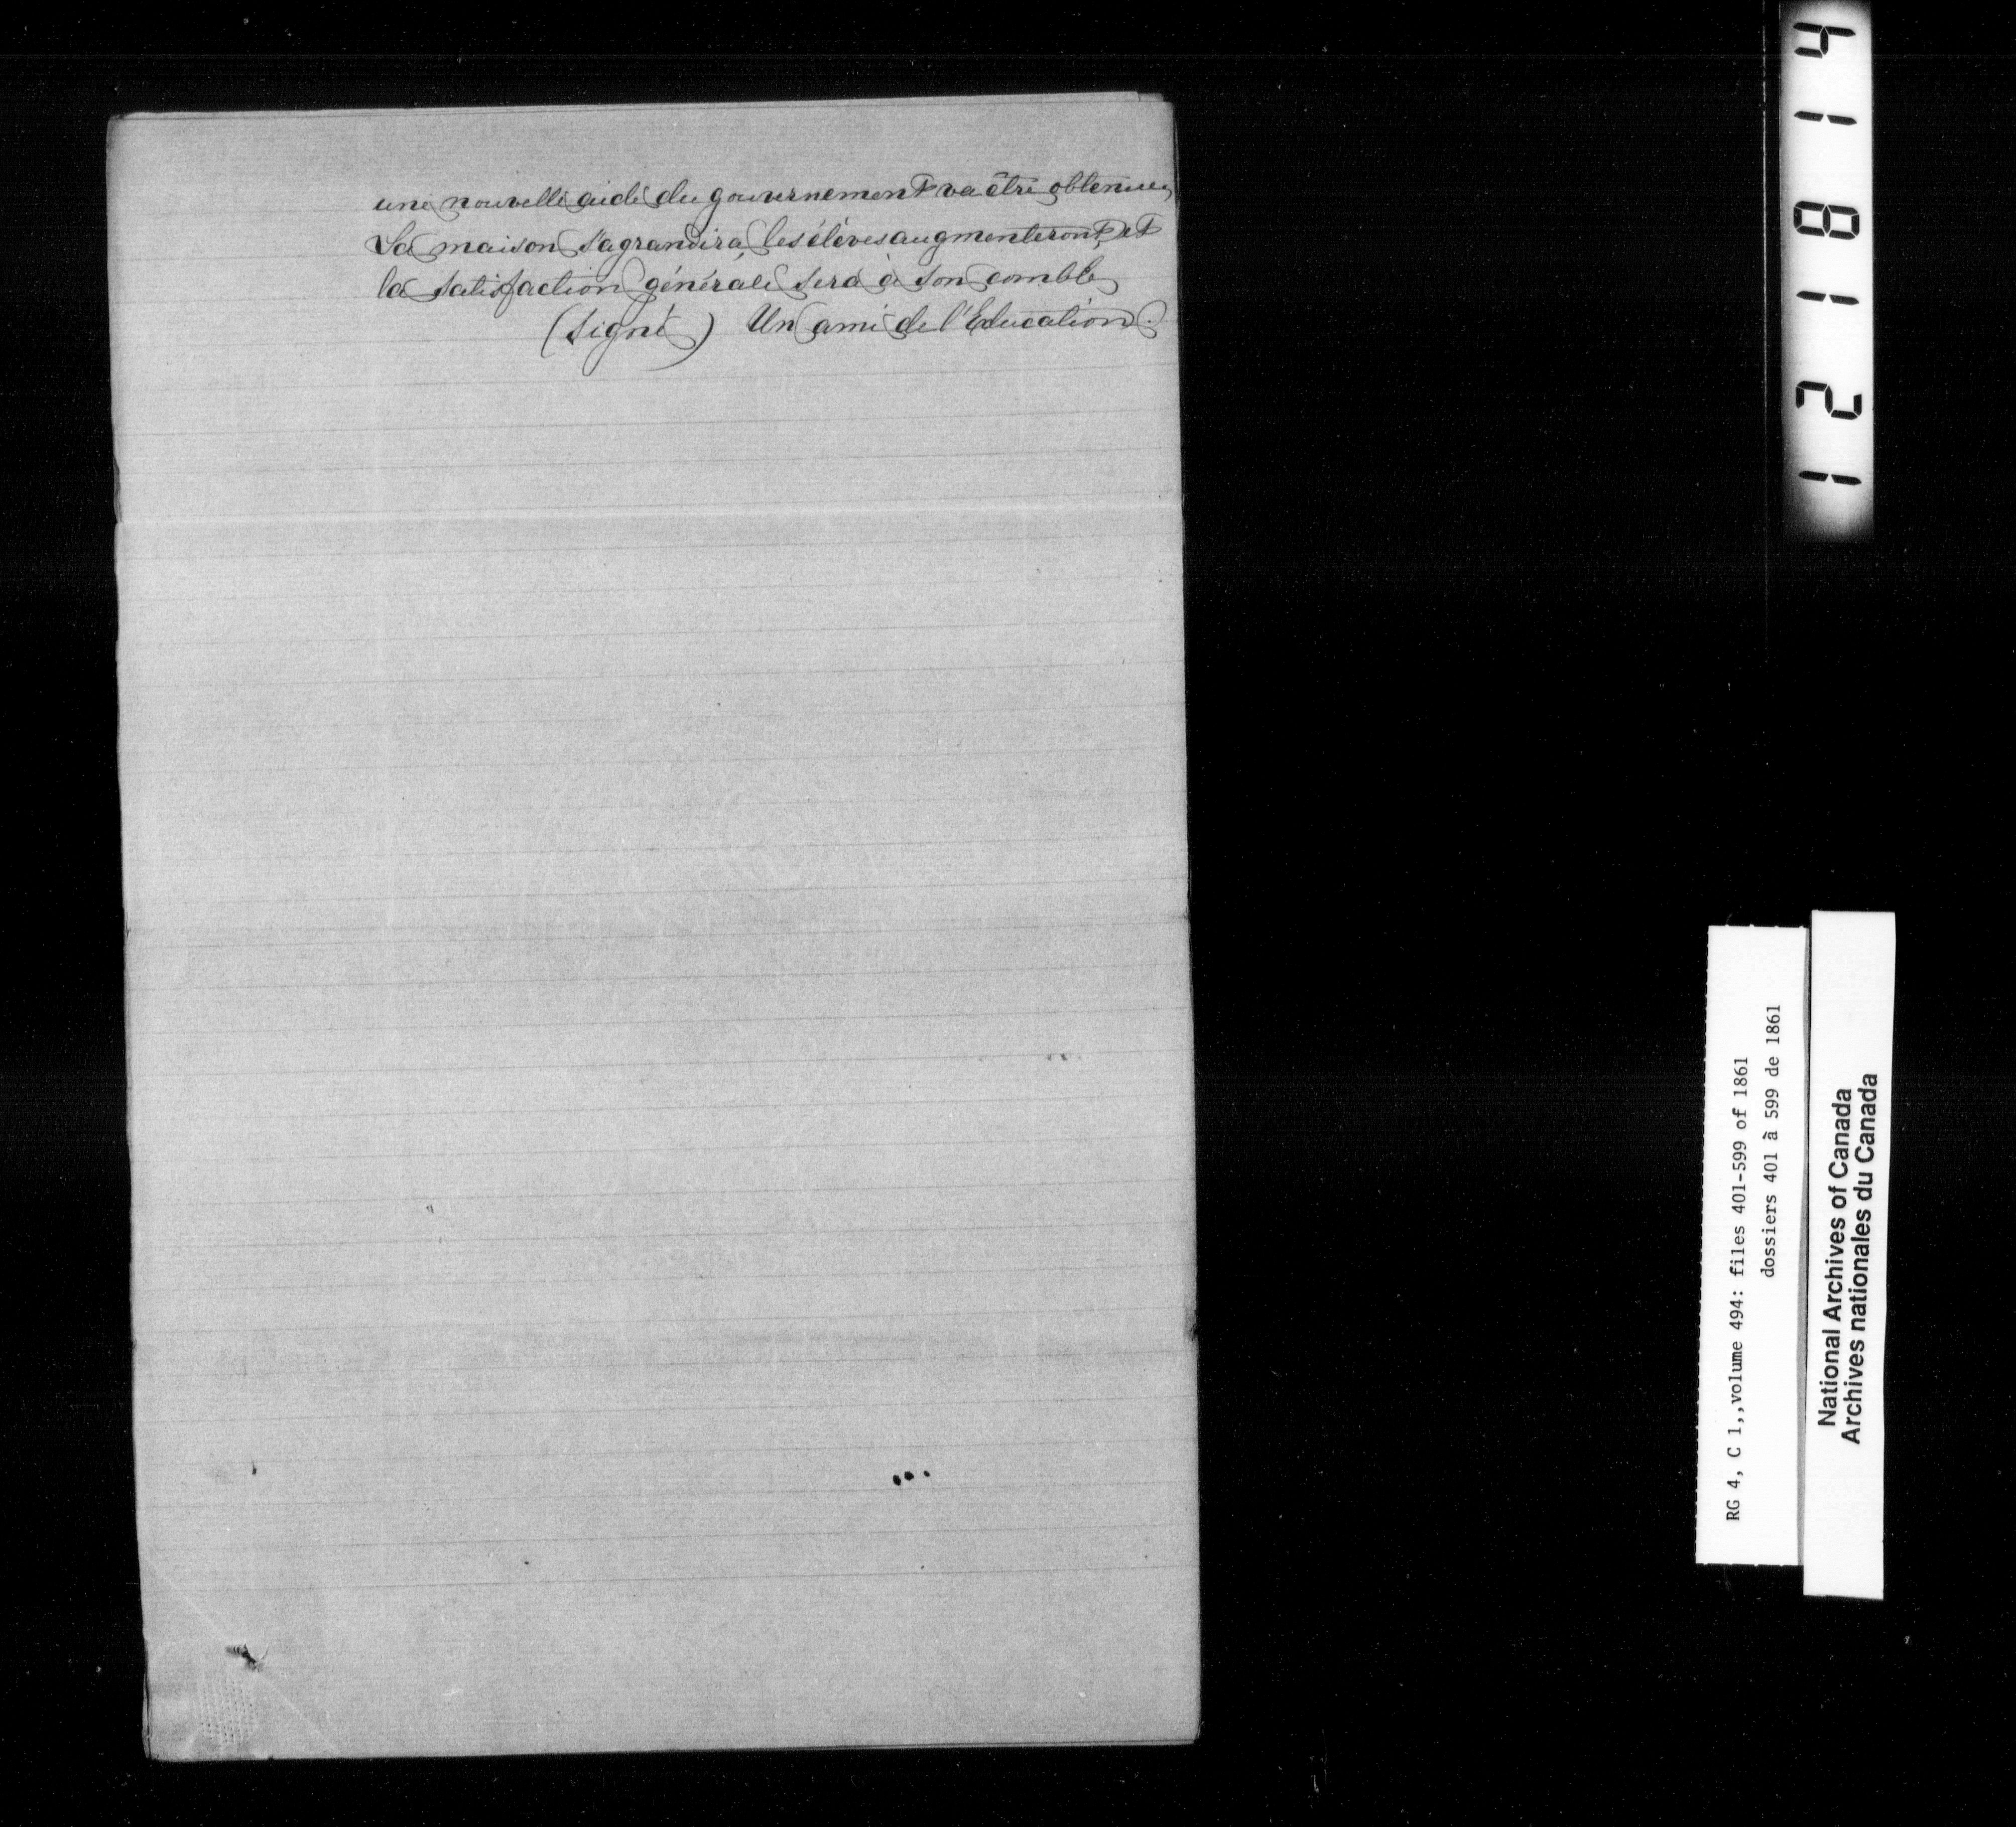 une nouvelle aide du gouvernement va être obtenue,
La maison s'agrandira, les élèves augmenteront, et
la satisfaction générale sera à son comble
(signé) Un ami de l'Education.
121814
RG 4, C 1,,volume 494: files 401-599 of 1861
dossiers 401 à 599 de 1861
National Archives of Canada
Archives nationales du Canada